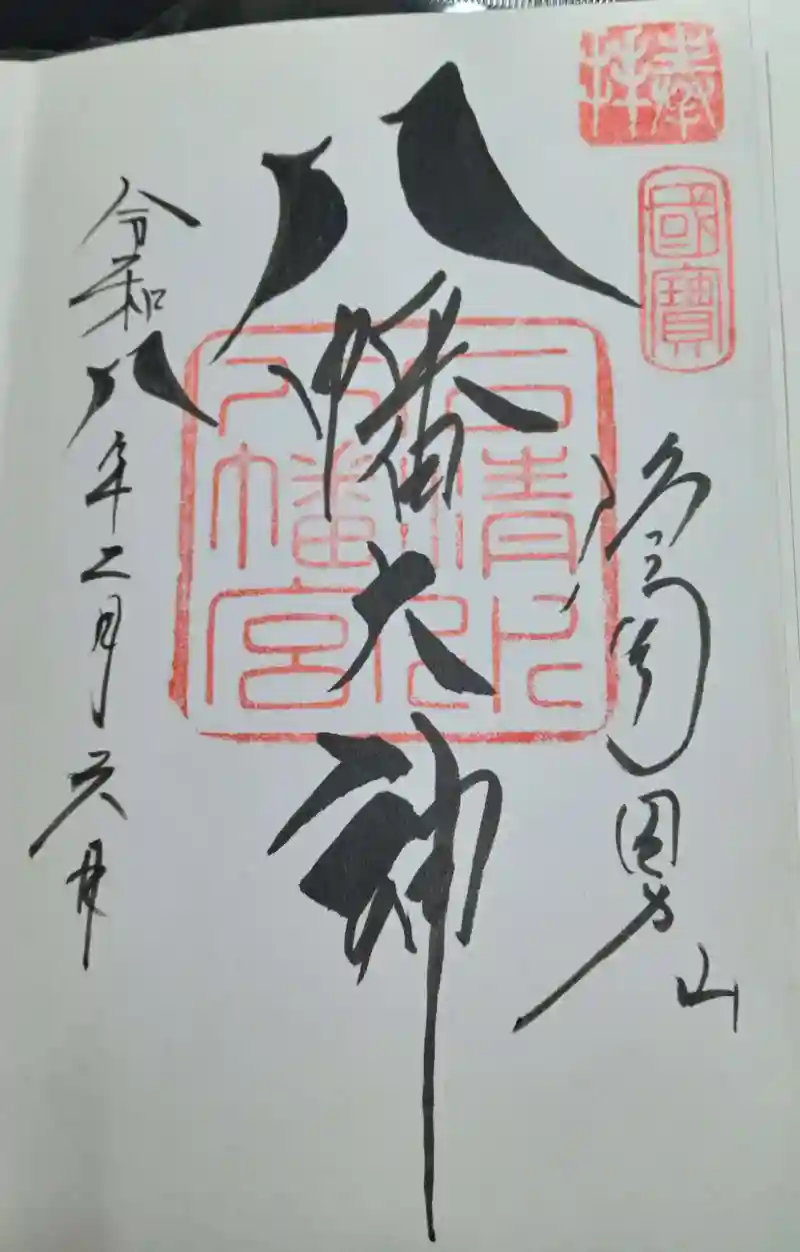 奉拜
國寶
洛南男山
八幡大神
石清水
八幡宮
令和八年二月六日